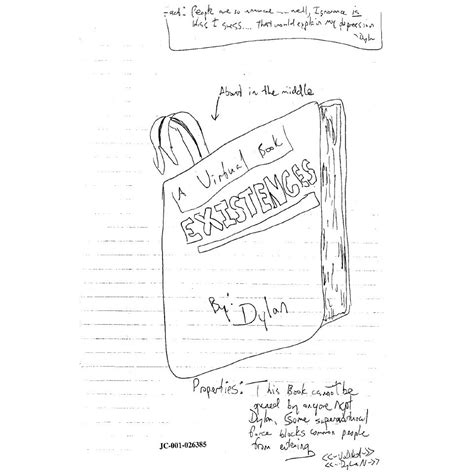 Fact: People are so unaware.... well, Ignorance is
bliss I guess.... that would explain my depression
~Dylan
About in the middle
A Virtual Book
EXISTENCES
By: Dylan
Properties: This Book cannot be
opened by anyone NOT
Dylan, (some supernatural
force blocks common people
from entering
JC-001-026385
<<-VoDkA->>
<<-DyLaN->>